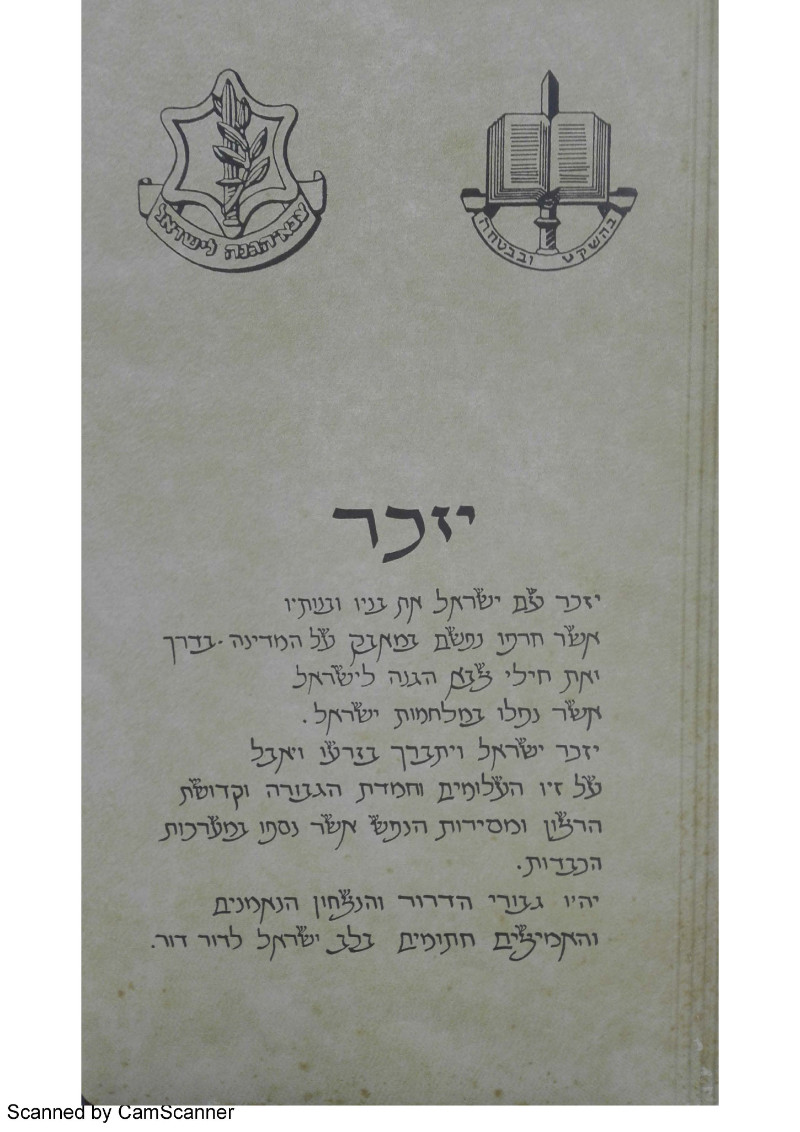 צבא־הגנה לישראל
בהשקט ובבטחה
יזכר
יזכר עם ישראל את בניו ובנותיו
אשר חרפו נפשם במאבק על המדינה·בדרך
ואת חילי צבא הגנה לישראל
אשר נפלו במלחמות ישראל.
יזכר ישראל ויתברך בזרעו ויאבל
על זיו העלומים וחמדת הגבורה וקדושת
הרצון ומסירות הנפש אשר נספו במערכות
הכבדות.
יהיו גבורי הדרור והנצחון הנאמנים
והאמיצים חתומים בלב ישראל לדור דור.
Scanned by CamScanner